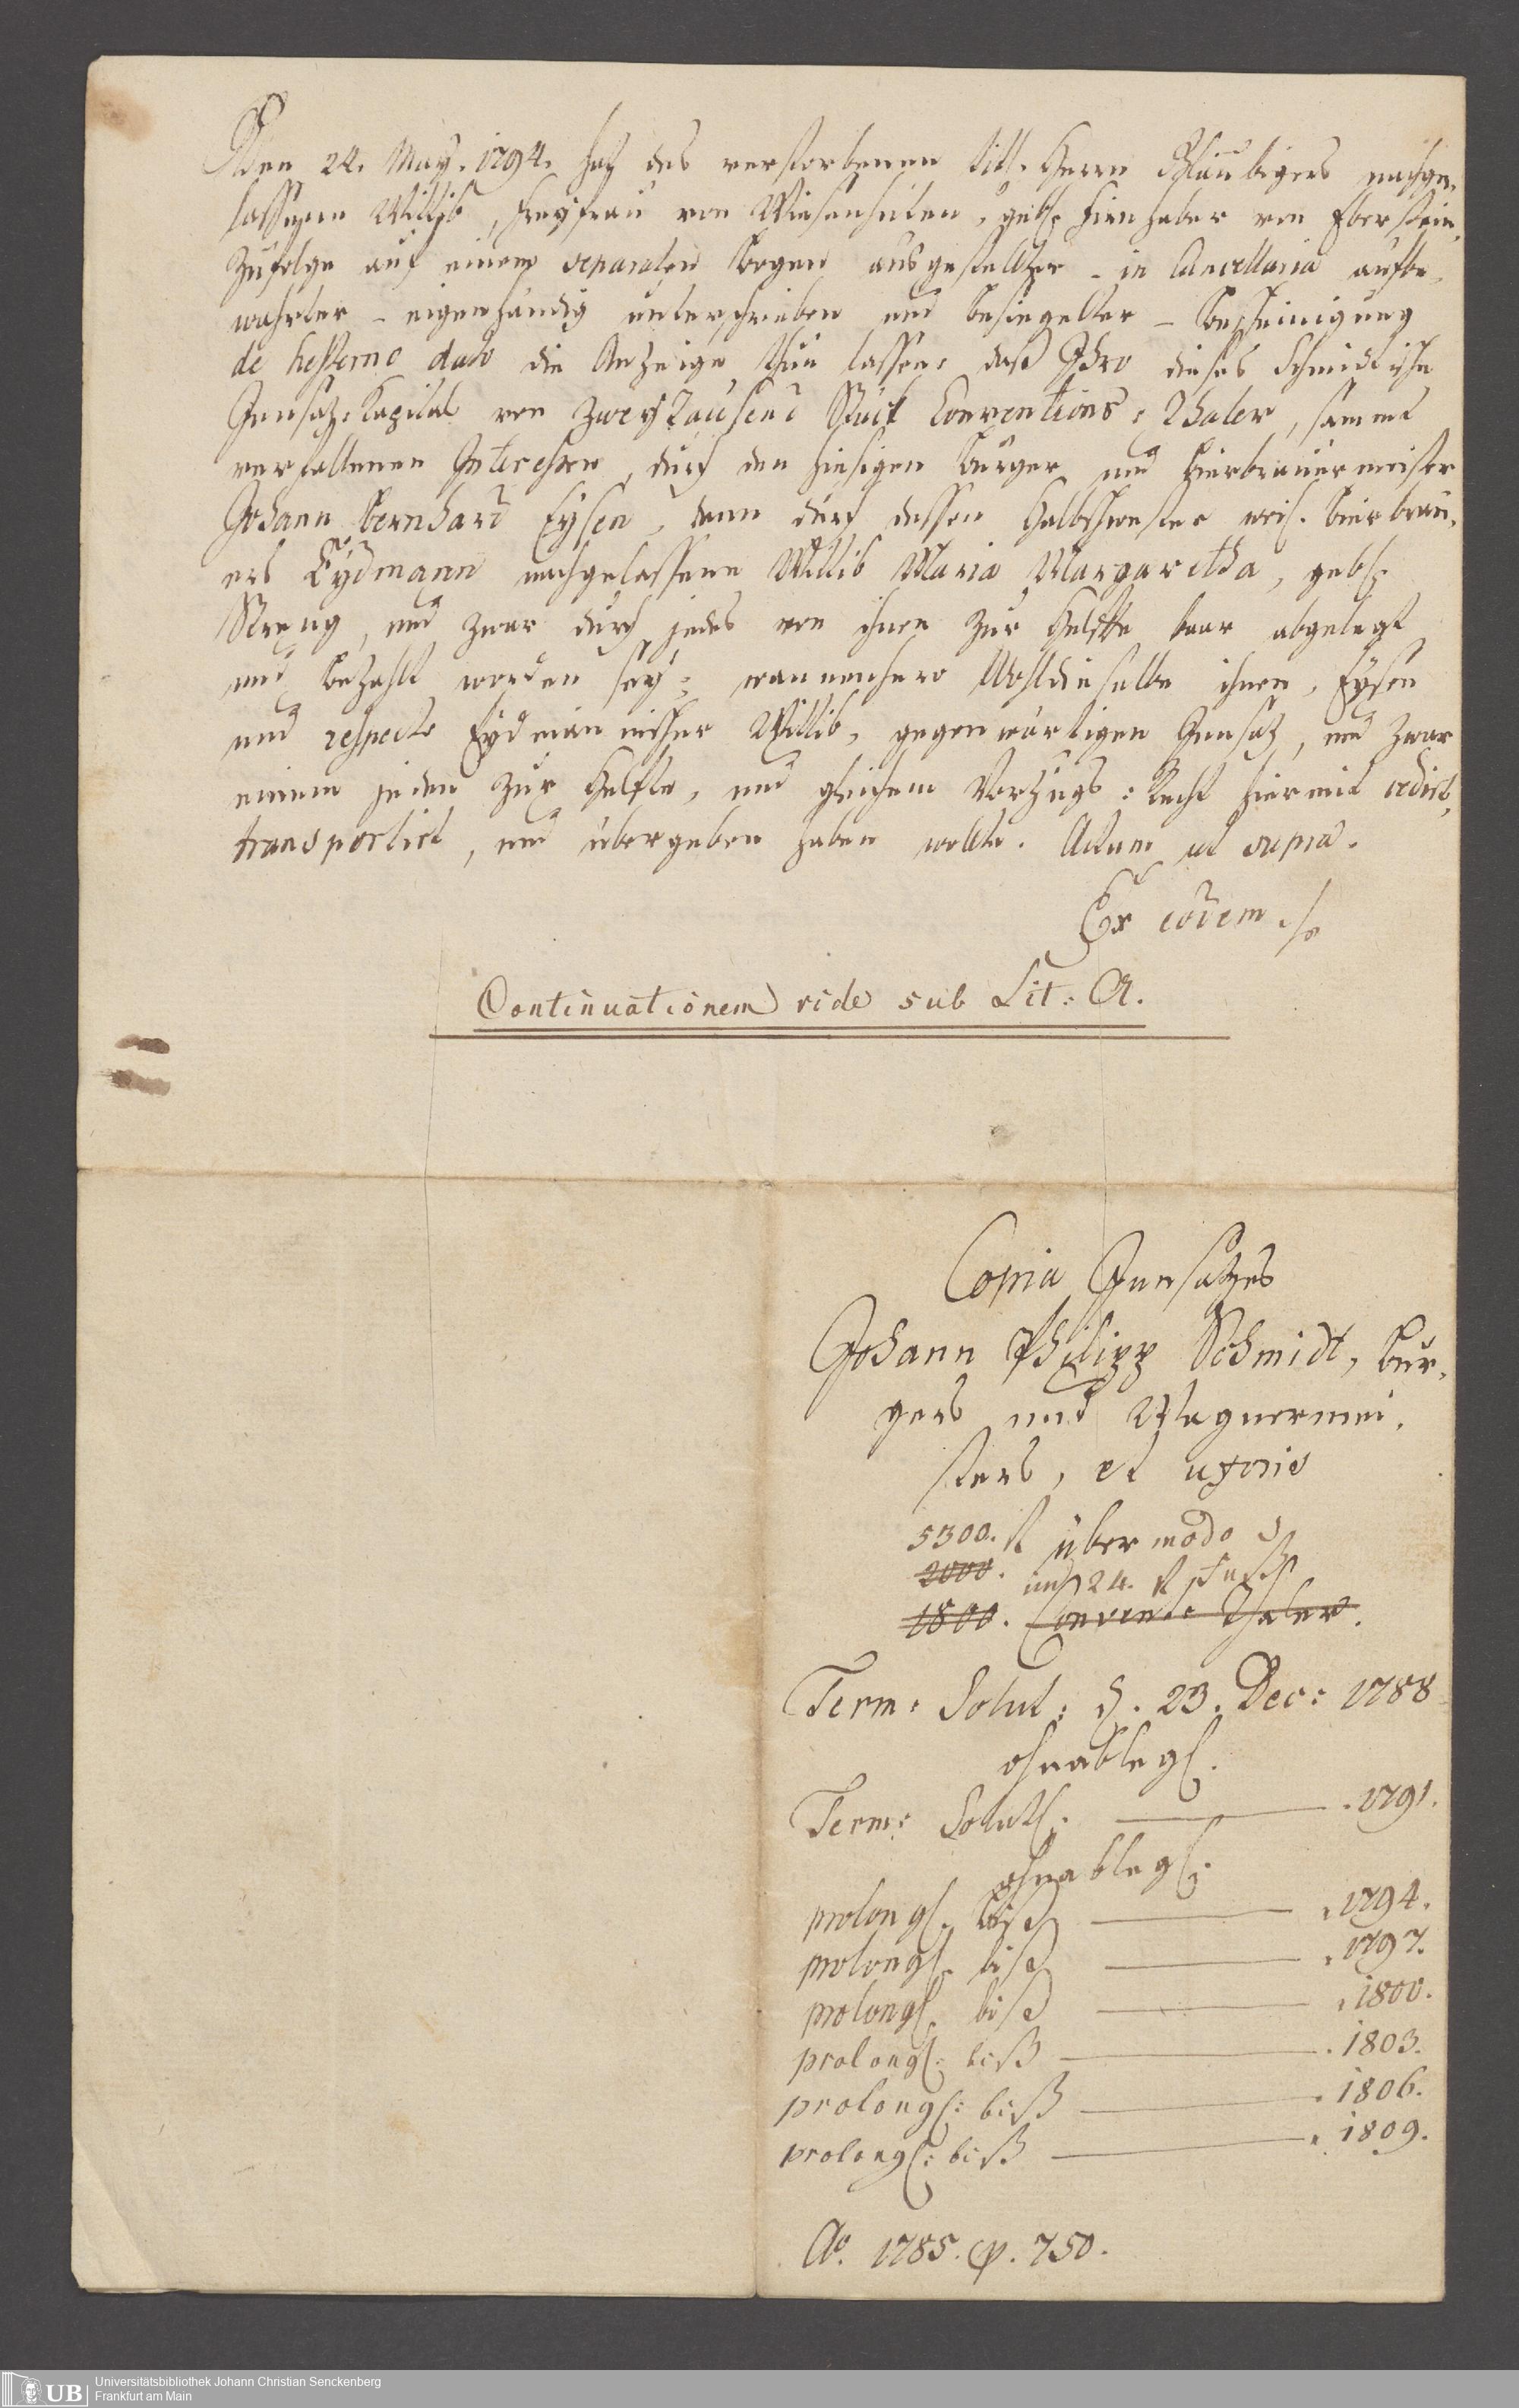 Den 24. May. 1794. hat des verstorbenen titl. Herrn Gläubigers nachge-
lassene Wittib, Freyfrau von Wiesenhüten, gebh. Hienhaber von Eberstein,
zufolge auf einem separaten Bogen ausgestellter - in Cancellaria aufbe-
wahrter - eigenhändig unterschrieben und besiegelter - Bescheinigung
de hesterno dato die Anzeige thun lassen, daß Ihro dieses Schmidtische
Innsatz-Kapital von Zwey Tausend Stück Conventions-Thaler, sammt
verfallenen Interessen, durch den hiesigen Burger und Bierbrauermeister
Johann Bernhard Eysen, dann durch dessen Halbschwester weil. Bierbrau-
ers Eydmann nachgelassene Wittib Maria Margaretha, gebh.
Streng, und zwar durch jedes von ihnen zur Helfte baar abgelegt
und bezahlt worden sey; wannenhero Wohldieselbe ihnen, Eysen
und respecte Eydmännischer Wittib, gegenwärtigen Innsatz, und zwar
einem jeden zur Helfte, und gleichem Vorzugs-Recht hiermit cedirt,
transportirt, und übergeben haben wollte. Actum ut supra.
Ex eodem
Continuationem vide sub Lit: A.
Copia Innsatzes
Johann Philipp Schmidt, Bur-
gers und Wagnermei-
sters, et uxoris
5300. fl über modo
2000. im 24. fl Fuß
1800. Convent. Thaler.
Term: Solut: d. 23. Dec: 1788
ohnablegl.
Term: Solutl. 1791.
ohnablegl.
prolongl. biß 1794.
prolongl. biß 1797.
prolongl. biß 1800.
prolongl: biß 1803.
prolongl: biß 1806.
prolongl: biß 1809.
Ao. 1785. p. 750.
UB
Universitätsbibliothek Johann Christian Senckenberg
Frankfurt am Main